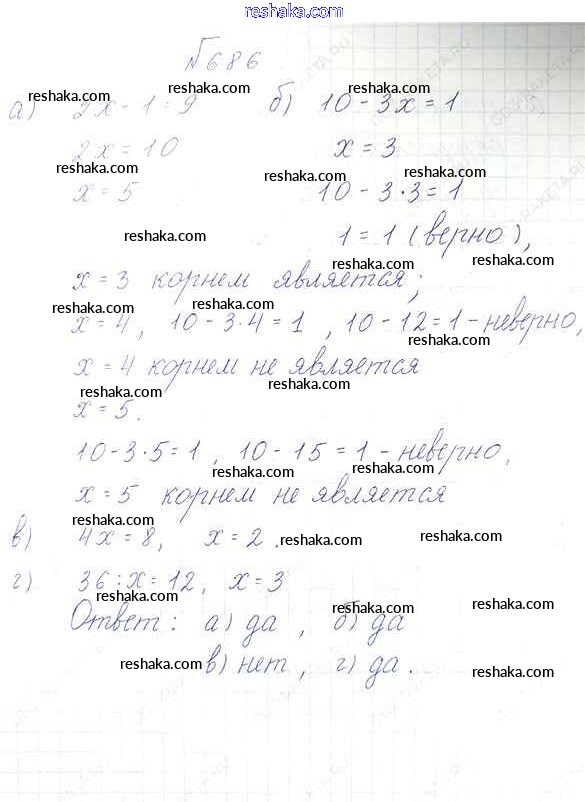 www.reshaka.com
№686
reshaka.com reshaka.com reshaka.com
а) 2x - 1 = 9 б) 10 - 3x = 1
2x = 10 x = 3
reshaka.com reshaka.com reshaka.com
x = 5 10 - 3·3 = 1
reshaka.com 1 = 1 (верно),
reshaka.com reshaka.com
x = 3 корнем является;
reshaka.com reshaka.com
x = 4, 10 - 3·4 = 1, 10 - 12 = 1 - неверно,
reshaka.com
x = 4 корнем не является
reshaka.com reshaka.com
x = 5.
10 - 3·5 = 1, 10 - 15 = 1 - неверно,
reshaka.com reshaka.com
x = 5 корнем не является
reshaka.com
в) 4x = 8, x = 2. reshaka.com reshaka.com
г) 36 : x = 12, x = 3
reshaka.com reshaka.com reshaka.com
Ответ: а) да, б) да
reshaka.com в) нет, г) да. reshaka.com